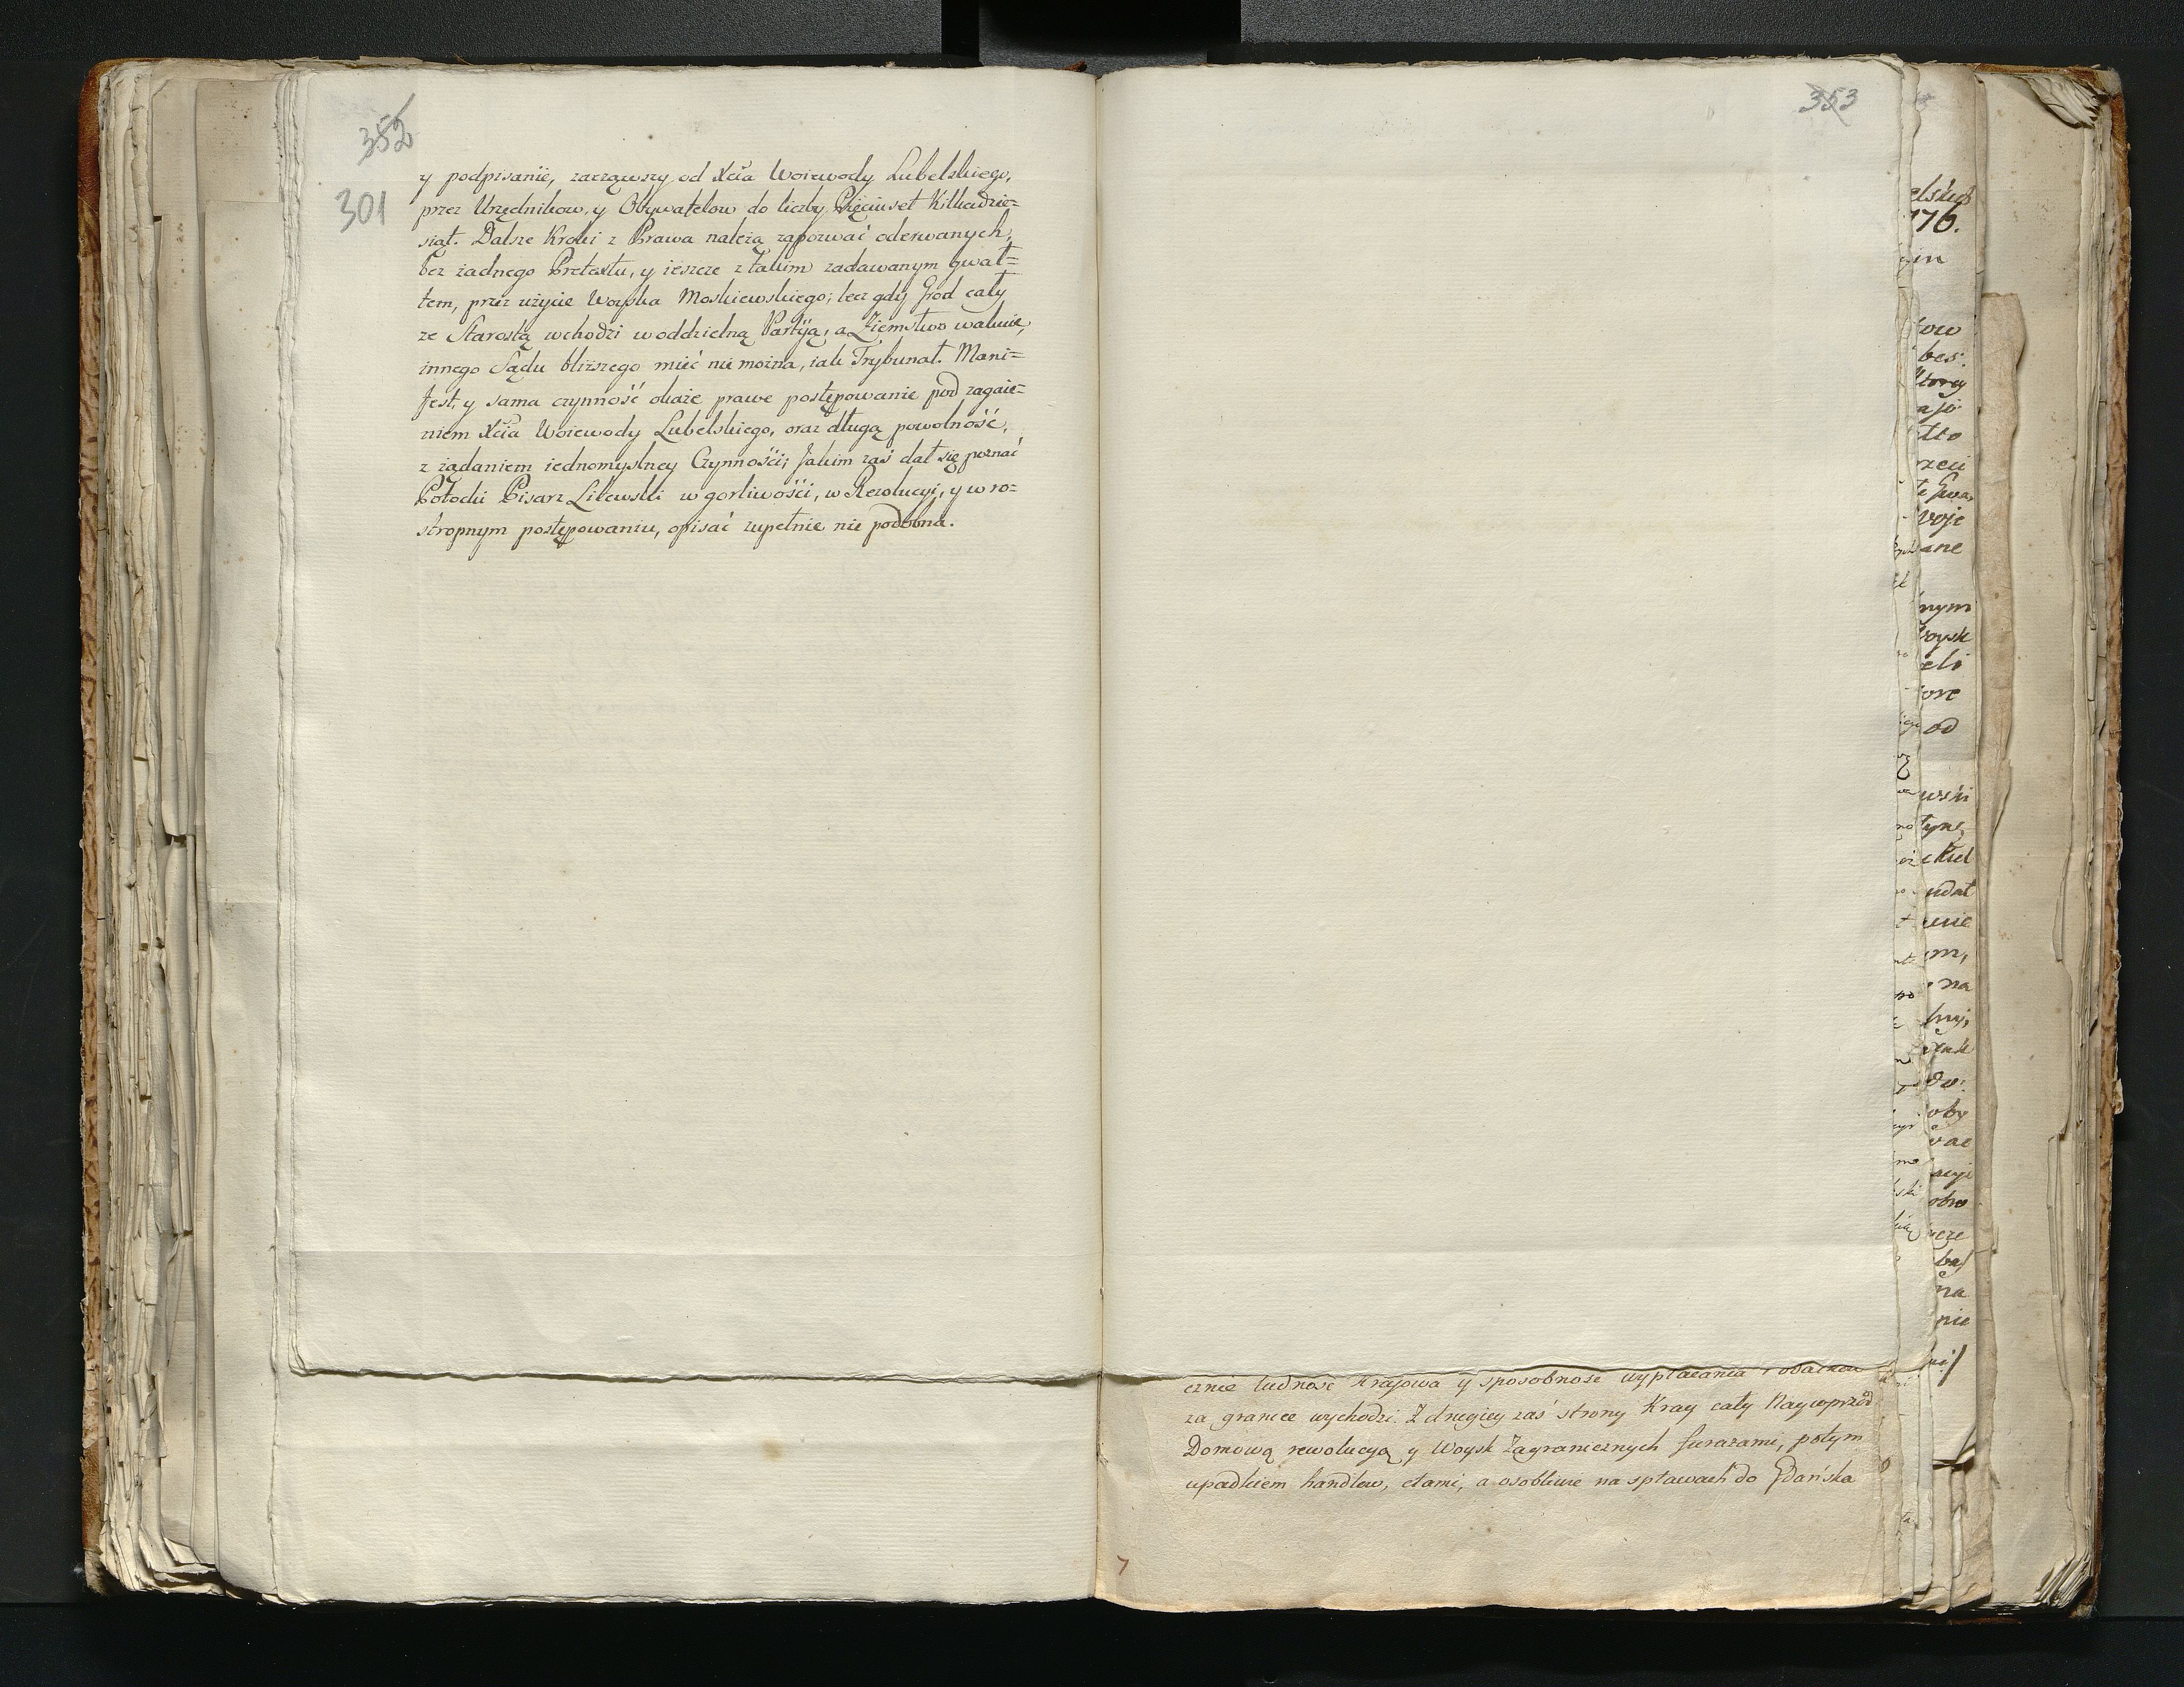 352
301
y podpisanie, zacząwszy od Xcia Woiewody Lubelskiego,
przez Urzędnikow, y Obywatelow do liczby Pięciuset Kilkadzie=
siąt. Dalsze Kroki z Prawa należą zapozwać oderwanych,
bez żadnego Pretextu, y ieszcze z takim zadawanym gwał=
tem, przez użycie Woyska Moskiewskiego; lecz gdy Grod cały
ze Starostą wchodzi w oddzielną Partyą, a Ziemstwo wakuie,
innego Sądu bliższego mieć nie można, iak Trybunał. Mani=
fest, y sama czynność okaże prawe postępowanie pod zagaie=
niem Xcia Woiewody Lubelskiego, oraz długą powolność,
z żądaniem iednomyslney Czynności; Jakim zaś dał się poznać
Potocki Pisarz Litewski w gorliwości, w Rezolucyi, y w ro=
stropnym postępowaniu, opisać zupełnie nie podobna.
353
cznie ludność Krajowa y sposobność wypłacania
za granice wychodzi. Z drugiey zaś strony Kray cały Nayuprzód
Domową rewolucyą y Woysk Zagranicznych furażami, potym
upadkiem handlow, cłami, a osobliwie na spławach do Gdańska
7
176.